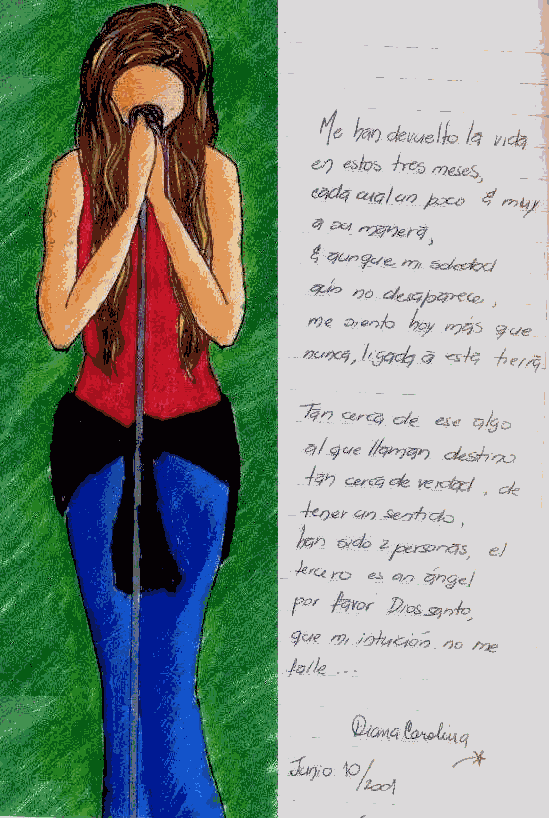 Me han devuelto la vida
en estos tres meses,
cada cual un poco & muy
a su manera,
& aunque mi soledad
aún no desaparece,
me siento hoy más que
nunca, ligada a esta tierra
Tan cerca de ese algo
al que llaman destino
tan cerca de verdad, de
tener un sentido,
han sido 2 personas, el
tercero es un ángel
por favor Dios santo,
que mi intuición no me
falle...
Diana Carolina
Junio 10/2001